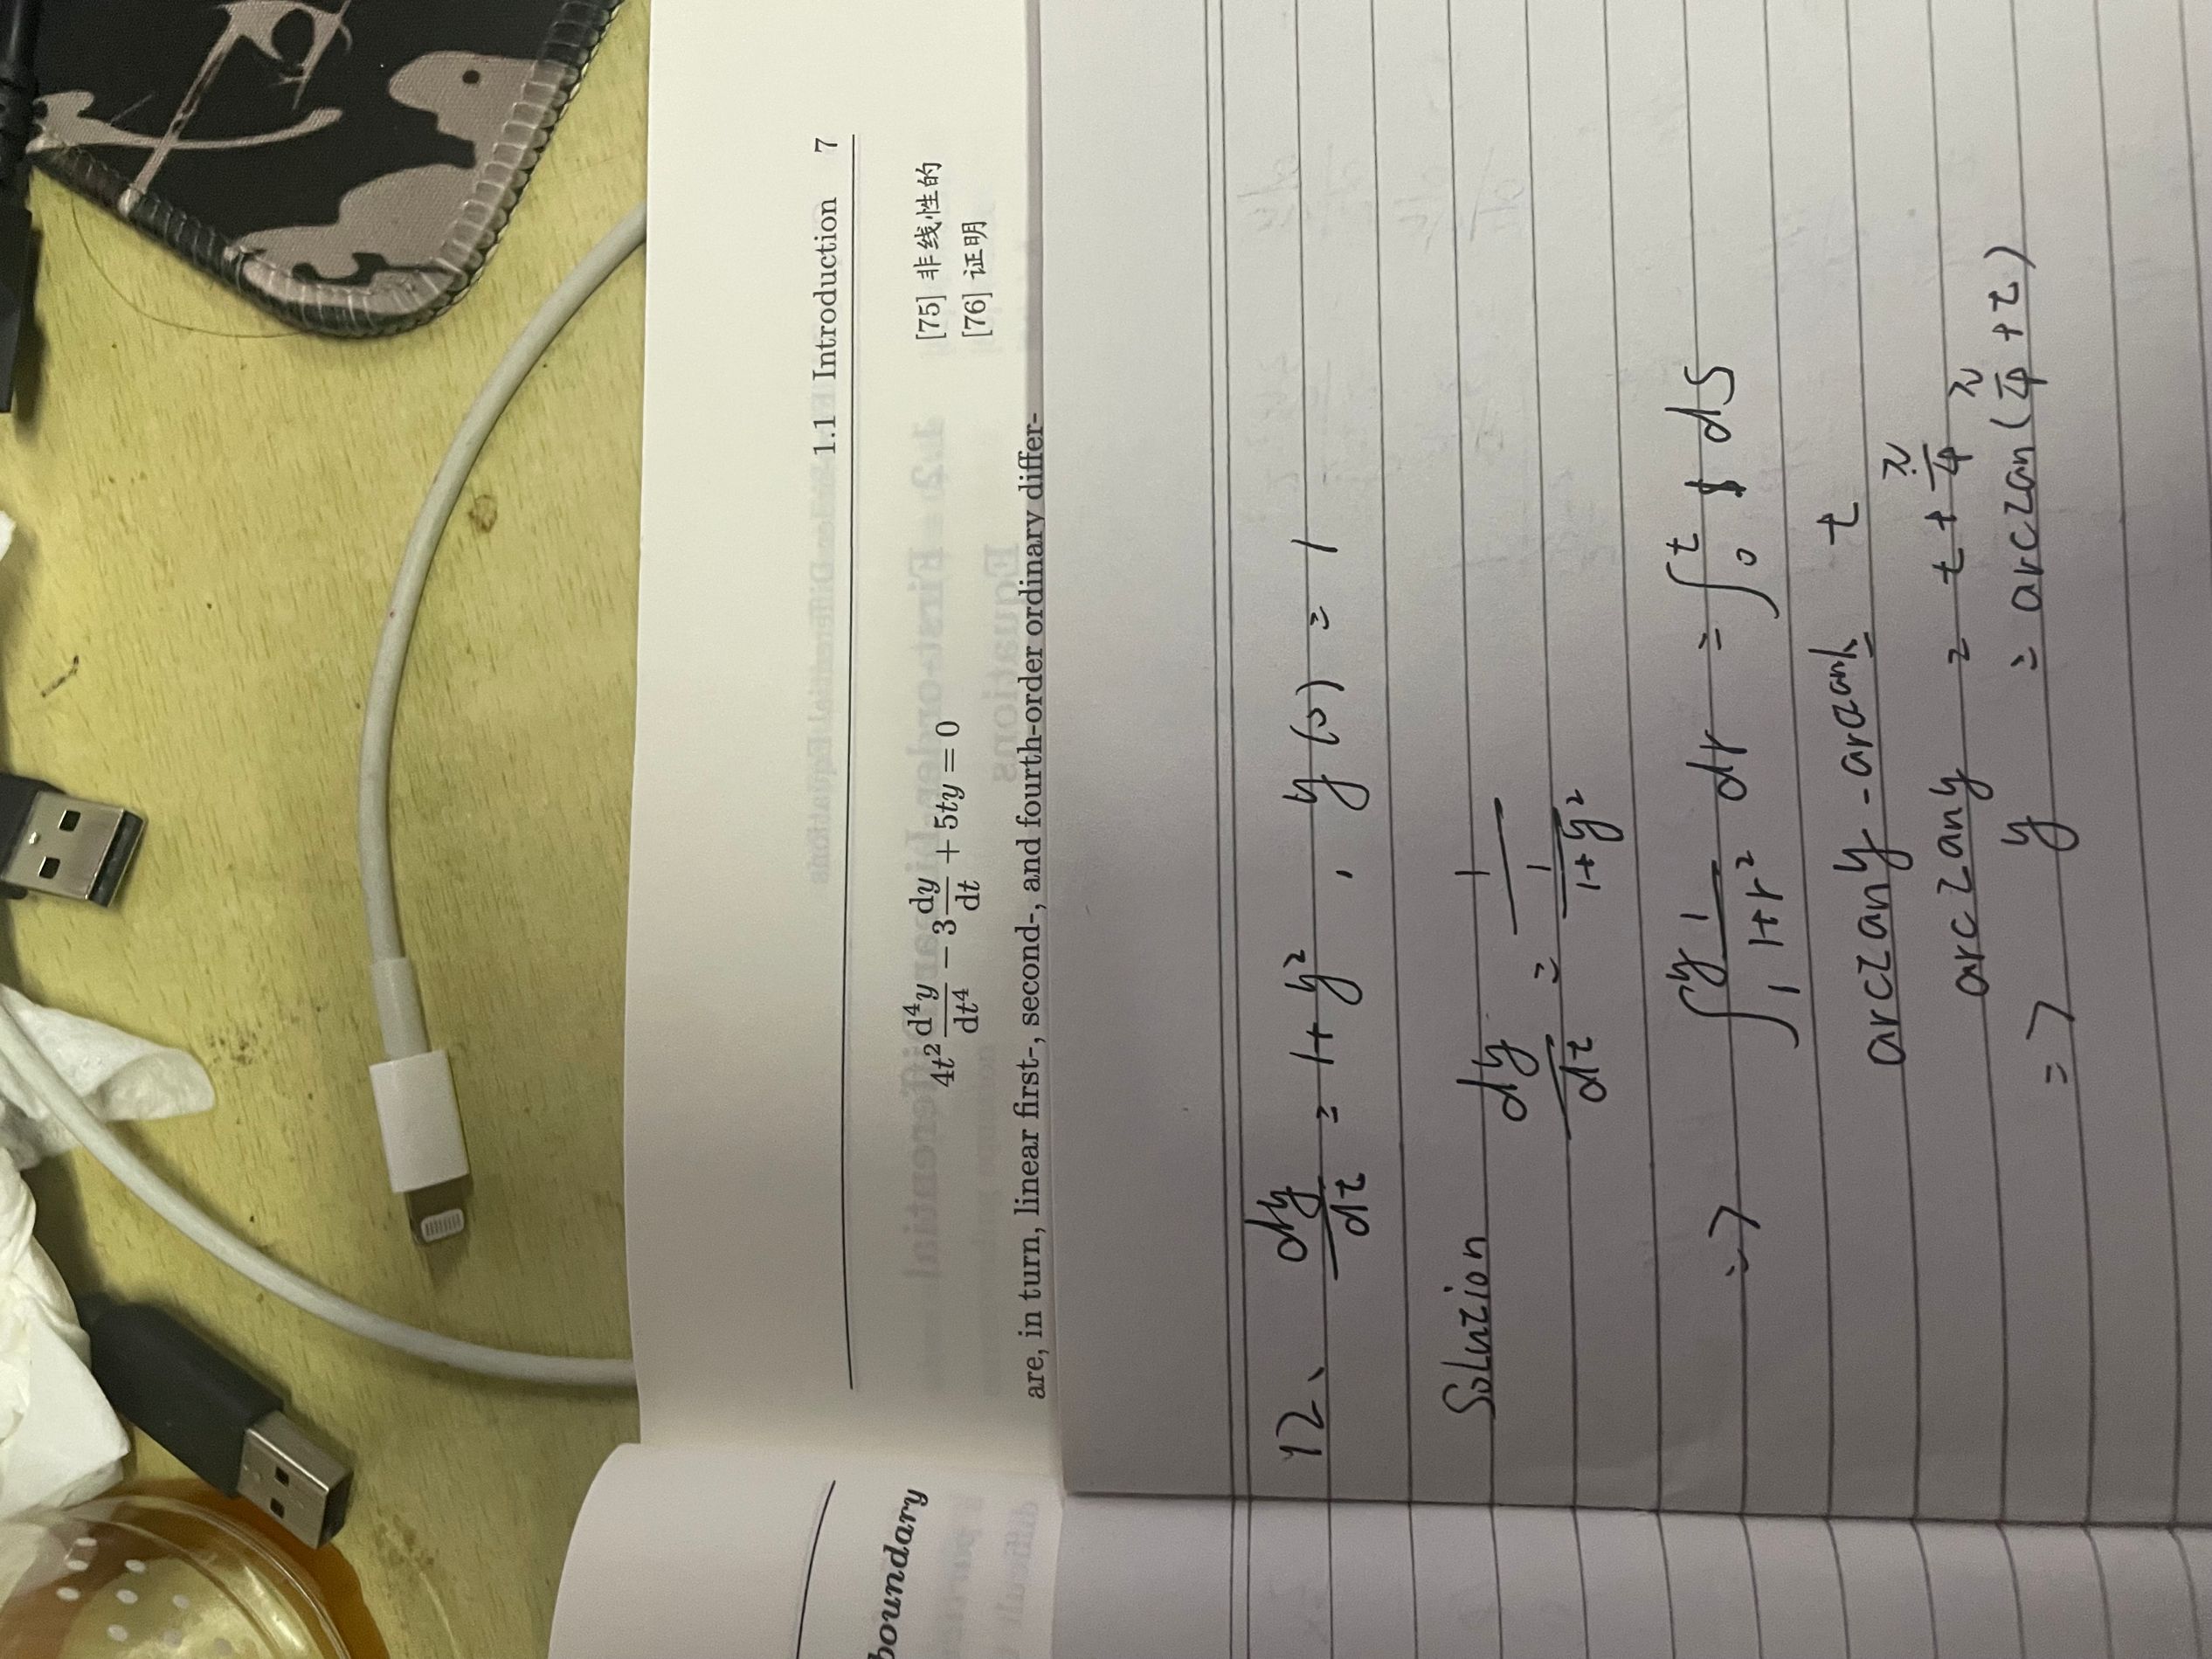 boundary
1.1 Introduction 7
4t² d⁴y/dt⁴ − 3 dy/dt + 5ty = 0
[75] 非线性的
[76] 证明
are, in turn, linear first-, second-, and fourth-order ordinary differ-
12、 dy/dt = 1+y² , y(0) = 1
Solution dy/dt = 1/(1/(1+y²))
=> ∫₁^y 1/(1+r²) dr = ∫₀^t 1 ds
arctany - arctan1 = t
arctany = t + π/4
=> y = arctan(π/4 + t)